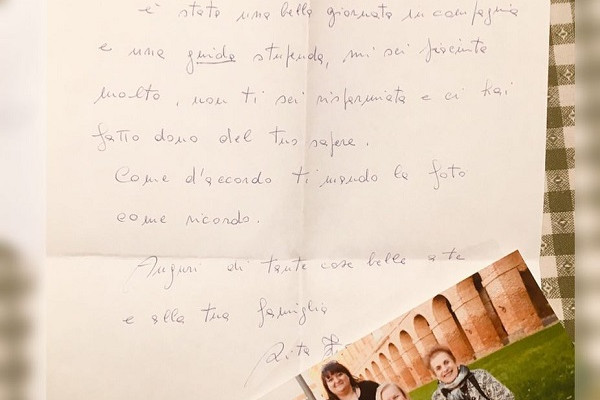 è stata una bella giornata in compagnia
e una guida stupenda, mi sei piaciuta
molto, non ti sei risparmiata e ci hai
fatto dono del tuo sapere.
Come d'accordo ti mando la foto
come ricordo.
Auguri di tante cose belle a te
e alla tua famiglia
Rita